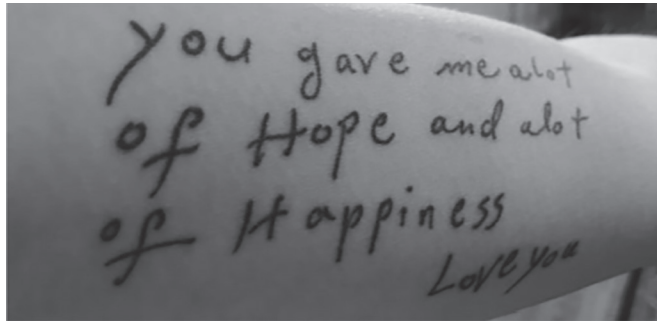 you gave me alot
of Hope and alot
of Happiness
Love you